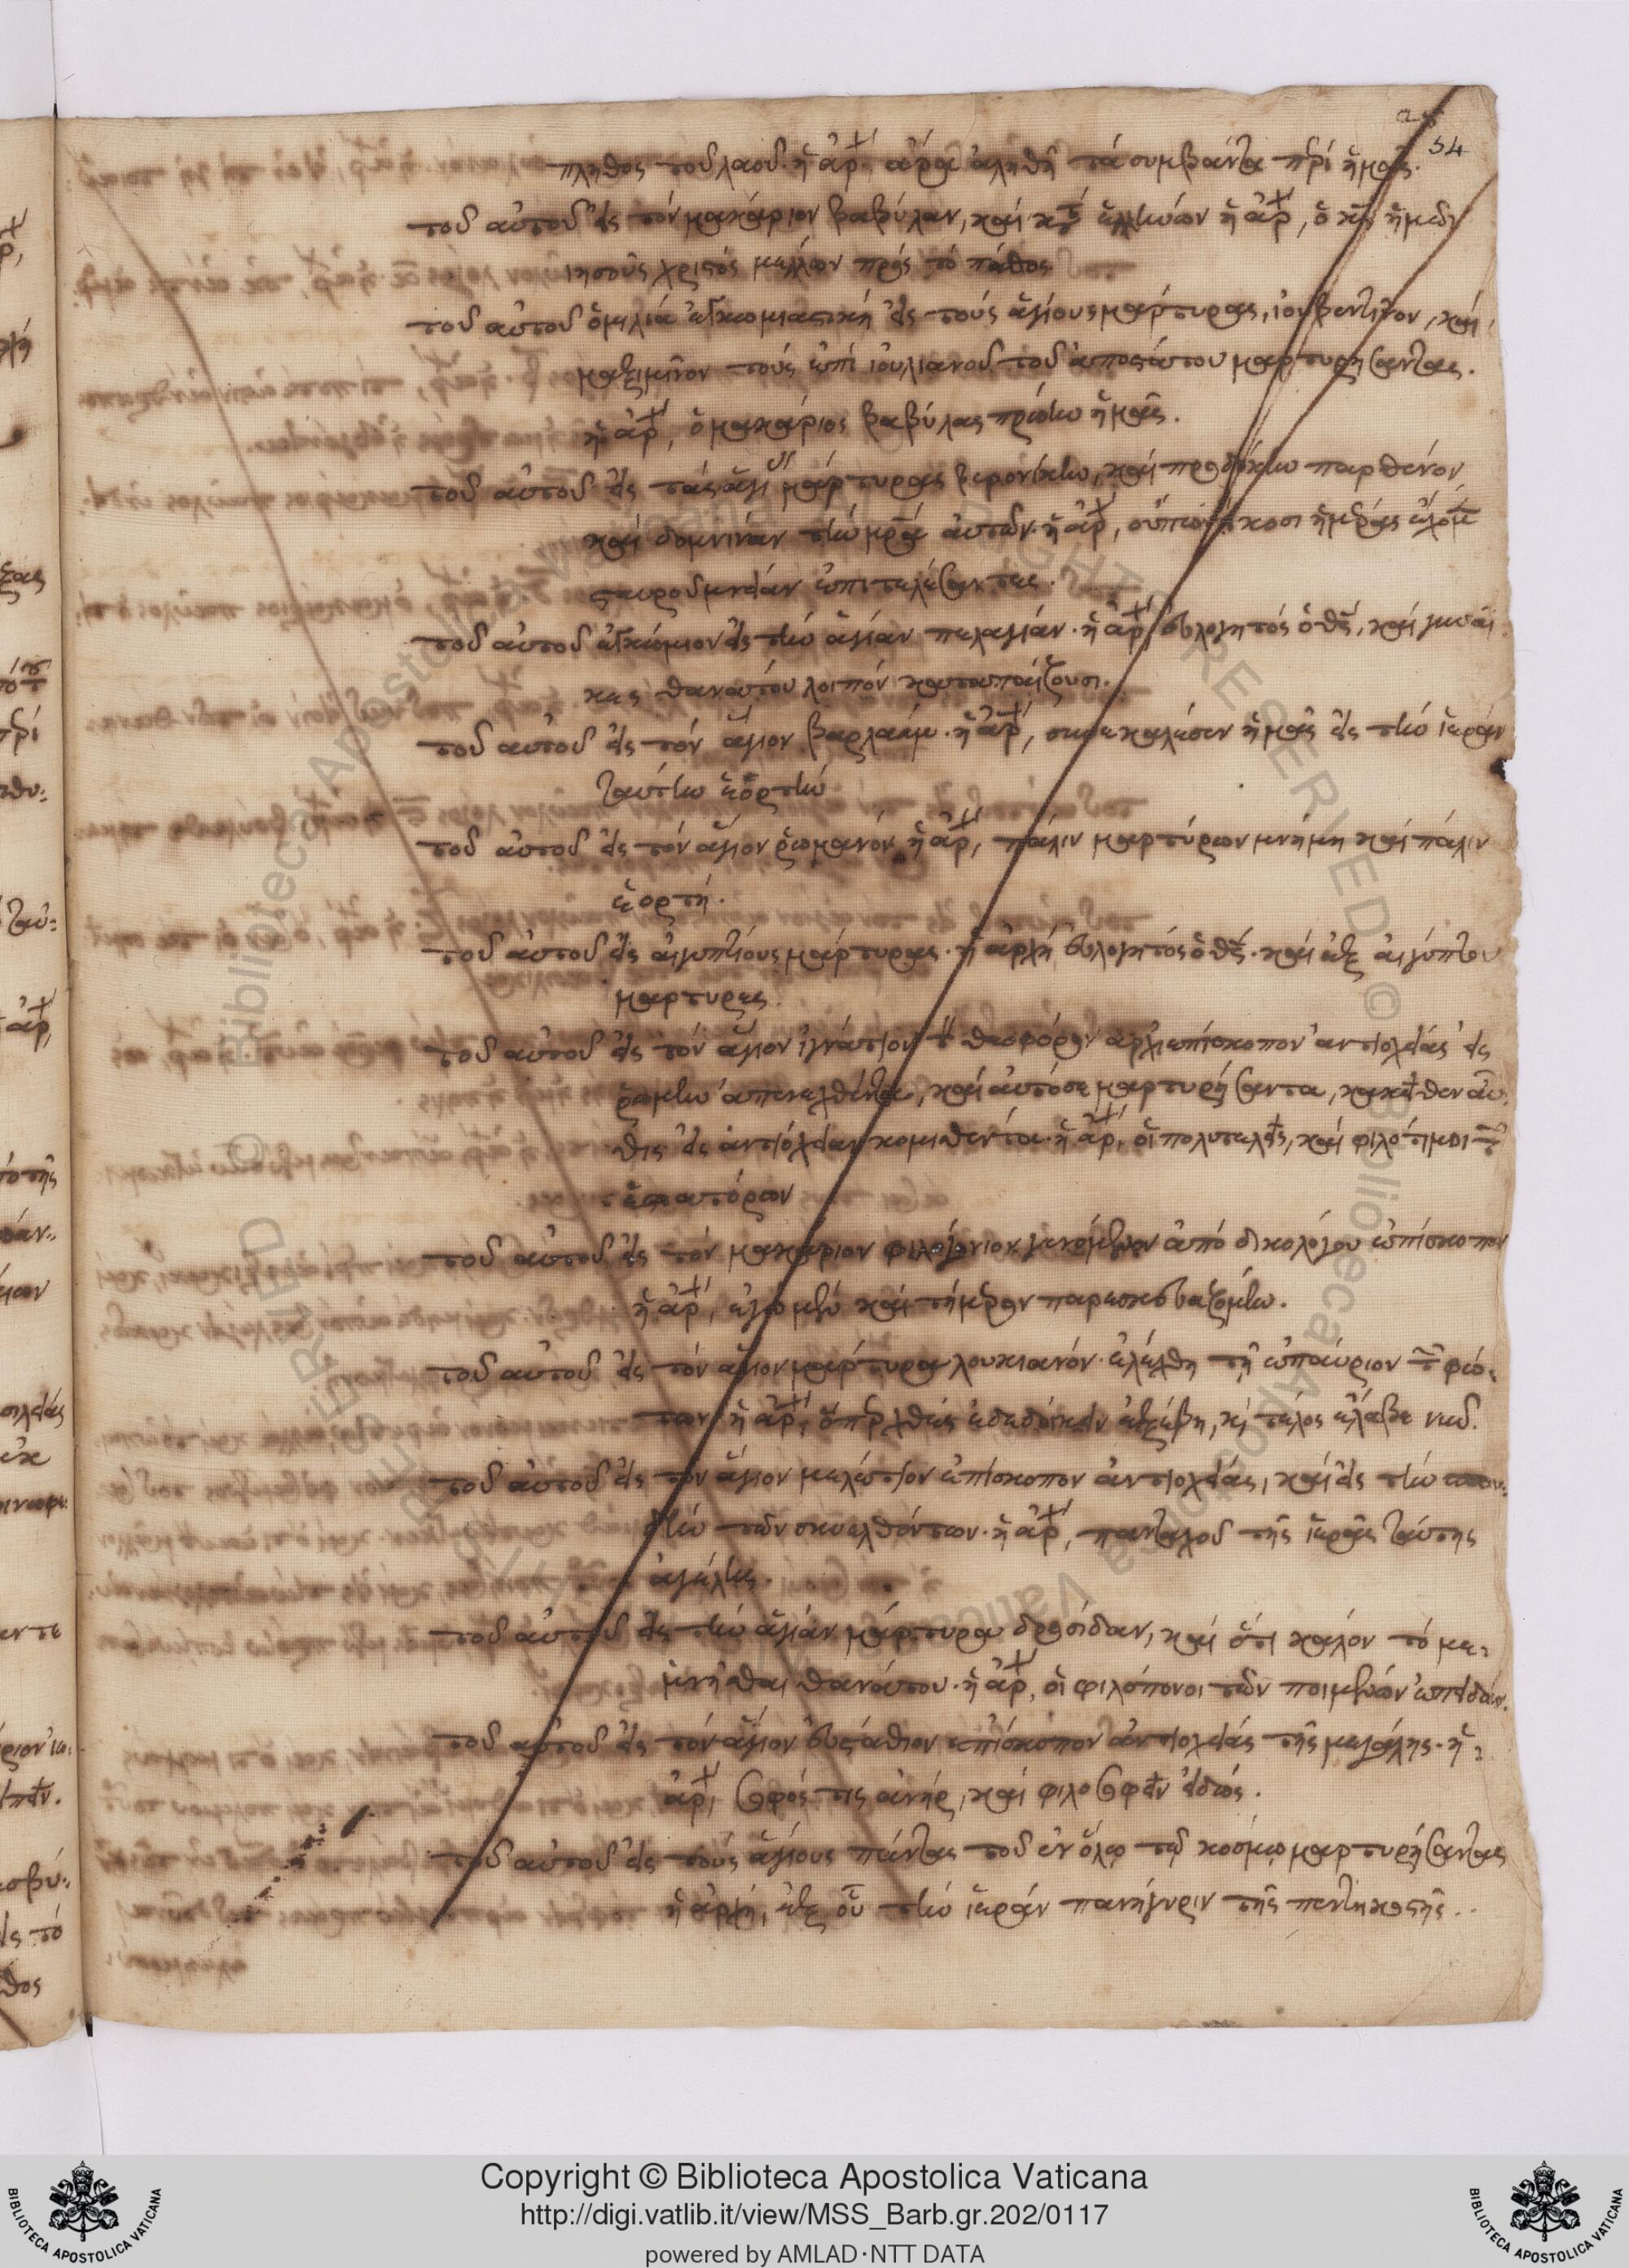 54
πληθος τοῦ λαοῦ. ἡ ἀρχ ἆρα ἀληθῆ τά συμβάντα πρί ἡμᾶς.
τοῦ αὐτοῦ εἰς τόν μακάριον βαβύλαν, καί κτ ἑλλήνων ἡ ἀρχ, ὁ κς ἡμῶν
ιησοῦς χριστός μέλλων πρός τό πάθος
τοῦ αὐτοῦ ὁμιλία ἐγκωμιαστική εἰς τούς ἁγίους μάρτυρας, ἰουβεντῖνον, καί
μαξιμῖνον τούς ἐπί ἰουλιανοῦ τοῦ ἀποστάτου μαρτυρήσαντας.
ἡ ἀρχ, ὁ μακάριος βαβύλας πρώην ἡμᾶς.
τοῦ αὐτοῦ εἰς τάς ἁγι μάρτυρας βερονίκην, καί προσδόκην παρθένον
καί δομνίναν τήν μρα αὐτῶν. ἡ ἀρχ, οὔπω εἴκοσι ἡμέρας ἔχομεν
σταυροῦ μνείαν ἐπιτελέσαντες.
τοῦ αὐτοῦ ἐγκώμιον εἰς τήν ἁγίαν πελαγίαν. ἡ ἀρχ, εὐλογητός ὁ θς, καί γυναῖ
κες θανάτου λοιπόν καταπαίζουσι.
τοῦ αὐτοῦ εἰς τόν ἅγιον βαρλαάμ. ἡ ἀρχ, συνεκάλεσεν ἡμᾶς εἰς τήν ἱεράν
ταύτην ἑορτήν
τοῦ αὐτοῦ εἰς τόν ἅγιον ῥωμανόν ἡ ἀρχ, πάλιν μαρτύρων μνήμη καί πάλιν
ἑορτή.
τοῦ αὐτοῦ εἰς αἰγυπτίους μάρτυρας. ἡ ἀρχή εὐλογητός ὁ θς. καί ἐξ αἰγύπτου
μάρτυρες.
τοῦ αὐτοῦ εἰς τόν ἅγιον ἰγνάτιον τ θεοφόρον ἀρχιεπίσκοπον ἀντιοχείας εἰς
ῥώμην ἀπενεχθέντα, καί αὐτόσε μαρτυρήσαντα, κακεῖθεν αὖ
θις εἰς ἀντιόχειαν κομισθέντα. ἡ ἀρχ, οἱ πολυτελεῖς, καί φιλότιμοι τ
ἑστιατόρων
τοῦ αὐτοῦ εἰς τόν μακάριον φιλογόνιον γενόμενον ἀπό δικολόγου ἐπίσκοπον
ἡ ἀρχ, ἐγώ μέν καί τήμερον παρεσκευαζόμην.
τοῦ αὐτοῦ εἰς τόν ἅγιον μάρτυρα λουκιανόν. ἐλέχθη τῇ ἐπαύριον τ φώ-
των ἡ ἀρχ,
τοῦ αὐτοῦ εἰς τόν ἅγιον μελέτιον ἐπίσκοπον ἀντιοχείας, καί εἰς τήν
τῶν συνελθόντων. ἡ ἀρχ, πανταχοῦ τῆς ἱερᾶς ταύτης
ἀγέλης.
τοῦ αὐτοῦ εἰς τήν ἁγίαν μάρτυρα δροσίδαν, καί ὅτι καλόν τό με-
μνῆσθαι θανάτου. ἡ ἀρχ, οἱ φιλόπονοι τῶν ποιμένων ἐπειδάν.
τοῦ αὐτοῦ εἰς τόν ἅγιον εὐστάθιον ἐπίσκοπον ἀντιοχείας τῆς μεγάλης. ἡ-
ἀρχ, σοφός τις ἀνήρ, καί φιλοσοφεῖν εἰδώς.
τοῦ αὐτοῦ εἰς τούς ἁγίους πάντας τοῦ ἐν ὅλῳ τῷ κόσμῳ μαρτυρήσαντας
ἡ ἀρχή, ἐξ οὗ τήν ἱεράν πανήγυριν τῆς πεντηκοστῆς..
Copyright © Biblioteca Apostolica Vaticana
http://digi.vatlib.it/view/MSS_Barb.gr.202/0117
powered by AMLAD·NTT DATA
BIBLIOTECA APOSTOLICA VATICANA
BIBLIOTECA APOSTOLICA VATICANA